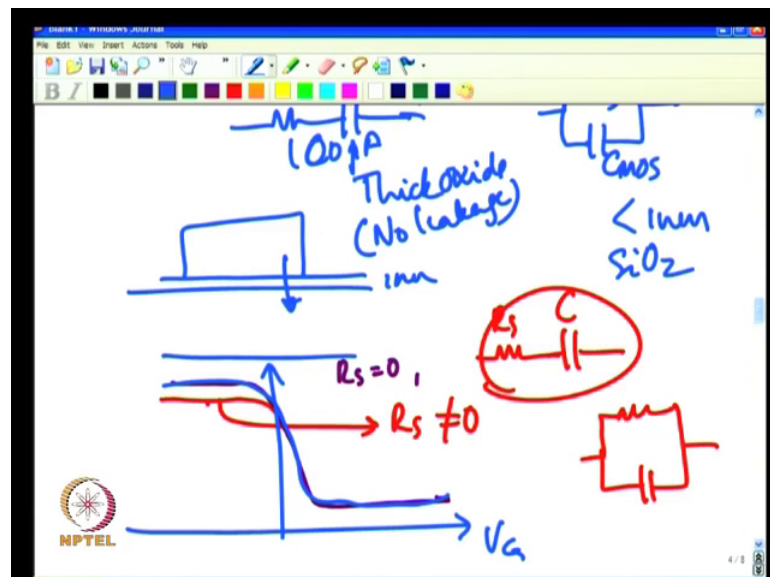 Blank1 - Windows Journal
File Edit View Insert Actions Tools Help
B I
100 μA
CMOS
Thick Oxide
(No leakage)
< 1nm
SiO2
1nm
Rs C
Rs=0,
Rs ≠0
VG
NPTEL
4 / 8